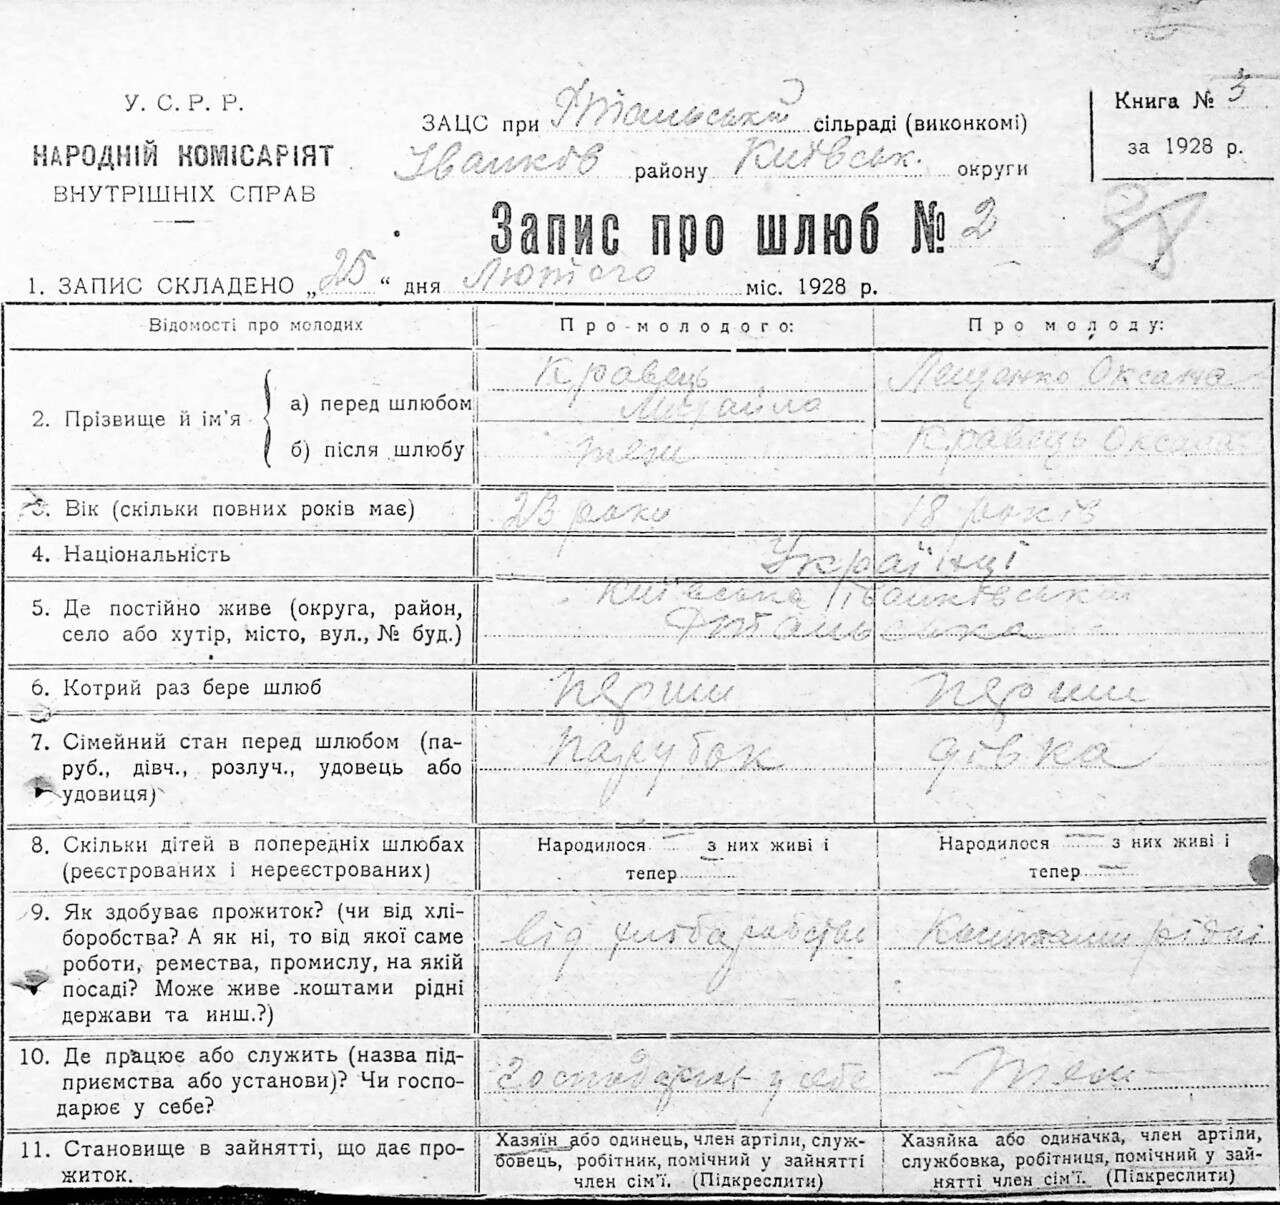 У. С. Р. Р.
НАРОДНІЙ КОМІСАРІЯТ
ВНУТРІШНІХ СПРАВ
ЗАЦС при сільраді (виконкомі)
Іванків району Київськ. округи
Книга № 3
за 1928 р.
Запис про шлюб № 2
28
1. ЗАПИС СКЛАДЕНО „25“ дня Лютого міс. 1928 р.
Відомості про молодих
Про молодого:
Про молоду:
2. Прізвище й ім'я
а) перед шлюбом
Кравець
Михайло
Лещенко Оксана
б) після шлюбу
теж
Кравець Оксана
3. Вік (скільки повних років має)
23 роки
18 років
4. Національність
Українці
5. Де постійно живе (округа, район,
село або хутір, місто, вул., № буд.)
Київська Іванківський
6. Котрий раз бере шлюб
перши
перши
7. Сімейний стан перед шлюбом (па-
руб., дівч., розлуч., удовець або
удовиця)
парубок
дівка
8. Скільки дітей в попередніх шлюбах
(реєстрованих і нереєстрованих)
Народилося — з них живі і
тепер —
Народилося — з них живі і
тепер —
9. Як здобуває прожиток? (чи від хлі-
боробства? А як ні, то від якої саме
роботи, ремества, промислу, на якій
посаді? Може живе коштами рідні
держави та инш.?)
від хлібаробства
Коштами рідні
10. Де працює або служить (назва під-
приємства або установи)? Чи госпо-
дарює у себе?
у себе
11. Становище в зайнятті, що дає про-
житок.
Хазяїн або одинець, член артіли, служ-
бовець, робітник, помічний у зайнятті
член сім'ї. (Підкреслити)
Хазяйка або одиначка, член артіли,
службовка, робітниця, помічний у зай-
нятті член сім'ї. (Підкреслити)